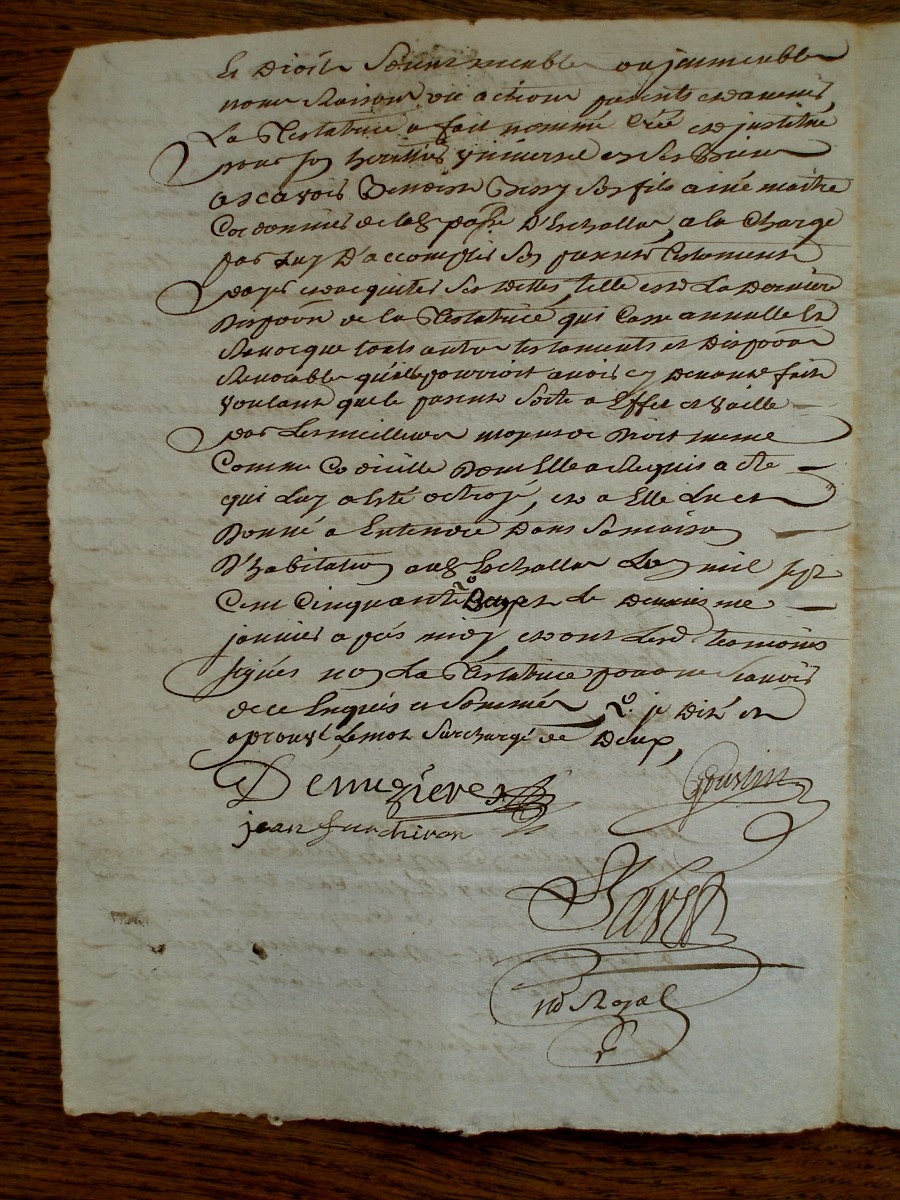 et Droits Soient meubles ou jmmeubles
noms Raisons vie actions presents et avenir,
La Testatrice a fait nommé Créé et jnstitué
pour son herittier Vniversel en ses Biens
ascavoir Benoist ses fils ainé maitre
Cordonnier de la de pnsse D'Eschallas, a la Charge
par Luy D'accomplir son present testament
payer et acquiter ses Dettes, telle est La Derniere
Dispoõn de la Testatrice, qui Casse annulle Et
Revocque touts autres testaments et Dispoõns
Revocables qu'elle pourroit avoir cy Devant fait
voulant que le present Sorte a Effet et vaille
par Les meilleurs moyens de Droit meme
Comme Codicille Dont Elle a Requis acte
qui Luy a Eté octroyé, et a Elle Lu et
Donné a Entendre Dans Sa maison
D'habitation aud Eschallas Lan mil sept
Cent Cinquante Deux et Le Deuxieme
janvier apres midy, et ont Lesd temoins
signés non La Testatrice pour ne Scavoir
de ce Enquis et Sommée, Ro. je Dit et
aprouvé Le mot Surchargé de Deux,
Demezieres
jean
Ravet
nõ Royal